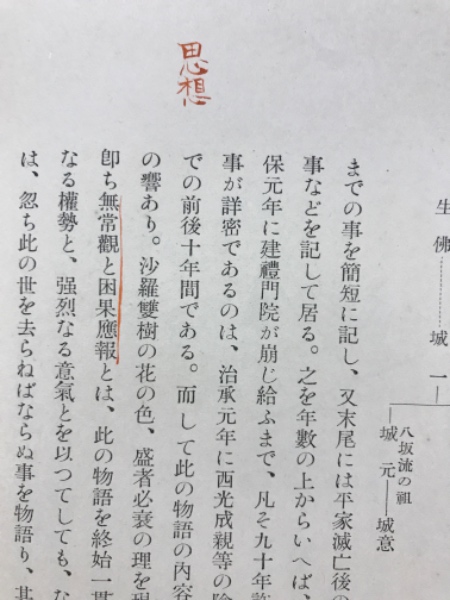 生佛………城一
八坂流の祖
城元――城意
思想
までの事を簡短に記し、又末尾には平家滅亡後の
事などを記して居る。之を年數の上からいへば、
保元年に建禮門院が崩じ給ふまで、凡そ九十年許
事が詳密であるのは、治承元年に西光成親等の陰
での前後十年間である。而して此の物語の內容
の響あり。沙羅雙樹の花の色、盛者必衰の理を現
卽ち無常觀と因果應報とは、此の物語を終始一貫
なる權勢と、强烈なる意氣とを以つてしても、な
は、忽ち此の世を去らねばならぬ事を物語り、其